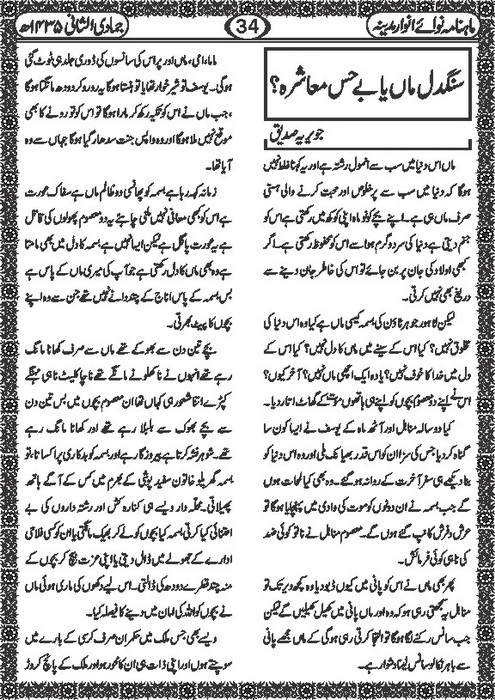 ماہنامہ نوائے انوار مدینہ
34
جمادی الثانی ۱۴۳۵ھ
سنگدل ماں یا بے حس معاشرہ؟
جویریہ صدیق
ماں اس دنیا میں سب سے انمول رشتہ ہے اور یہ کہنا غلط نہیں
ہوگا کہ دنیا میں سب سے پرخلوص اور محبت کرنے والی ہستی
صرف ماں ہی ہے۔ اپنے بچے کو نو ماہ اپنی کوکھ میں رکھتی ہے اس کو
جنم دیتی ہے دنیا کی سرد و گرم ہوا سے اس کو محفوظ رکھتی ہے۔ اگر
کبھی اولاد کی جان پر بن جائے تو اس کی خاطر جان دینے سے
دریغ بھی نہیں کرتی۔
لیکن لاہور جوہر ٹاؤن کی بسمہ کیسی ماں ہے کیا وہ اس دنیا کی
مخلوق نہیں؟ کیا اس کے سینے میں ماں کا دل نہیں؟ کیا اس کے
دل میں خدا کا خوف نہیں؟ یا وہ ایک اچھی ماں نہیں؟ آخر کیوں؟
اس نے اپنے دو معصوم بچوں کو اپنے ہی ہاتھوں موت کے گھاٹ اتار دیا۔
کیا دو سالہ مناہل اور آٹھ ماہ کے یوسف نے ایسا کون سا
گناہ کر دیا جس کی سزا ان کو اس قدر بھیانک ملی اور وہ اس دنیا کو
بنا دیکھے ہی سفر آخرت کے روانہ ہو گئے۔ وہ بھی کیا لمحات ہوں
گے جب ماں نے ان دونوں کو موت کی وادی میں پہنچایا ہوگا تو
عرش و فرش کانپ گئے ہوں گے۔ معصوم مناہل نے نا تو کوئی ضد
کی نا ہی کوئی فرمائش۔
پھر بھی ماں نے اس کو پانی میں کیوں ڈبو دیا وہ کچھ دیر تک تو
مناہل یہ سمجھتی رہی ہو کہ وہ اور ماں پانی میں کھیل کھیلیں گے لیکن
جب سانس رکنے لگا ہوگا تو التجا کرتی رہی ہوگی کے ماں مجھے پانی
سے باہر نکالو سانس لینا دشوار ہے۔
ماما، امی، ماں اور پر اس کی سانسوں کی ڈوری جلد ہی ٹوٹ گئی
ہوگی۔ یوسف تو شیر خوار تھا یا تو ہنستا ہوگا یہ رو رو کر دودھ مانگتا ہوگا
، جب ماں نے اس کو تکیہ رکھ کر مارا ہوگا تو اس کو تو رونے کا بھی
موقع نہیں ملا ہوگا اور وہ واپس جنت سدھار گیا ہوگا جہاں سے وہ
آیا تھا۔
زمانہ کہہ رہا ہے بسمہ کو پھانسی دو ظالم ماں ہے سفاک عورت
ہے اس کو بھی معافی نہیں ملنی چاہئے یہ دو معصوم پھولوں کی قاتل
ہے یہ عورت پاگل ہے لیکن ایسا نہیں ہے بسمہ کا دل میں بھی مامتا
ہے وہ بھی ماں کا دل رکھتی ہے جو آپ کی میری ماں کے پاس ہے
بس بسمہ کے پاس اناج کے چند دانے نہیں تھے جن سے وہ اپنے
بچوں کا پیٹ بھرتی۔
بچے تین دن سے بھوکے تھے ماں سے صرف کھانا مانگ
رہے تھے انہوں نے نا کھلونے مانگے تھے نا چاکلیٹ نا ہی مہنگے
کپڑے اتنا شعور ہی کہاں تھا ان معصوم بچوں میں بس تین دن
سے بچے بھوک سے بلبلا رہے تھے اور کھانا مانگ رہے
تھے۔ شوہر نشہ کرتا ہے بیروزگار ہے اور بسمہ کو بدکاری پر اکساتا تو
بسمہ گھریلو خاتون سفید پوشی کے بھرم میں کس کے آگے ہاتھ
پھیلاتی۔ محلہ دار ویسے ہی کنارہ کش اور رشتہ داروں کی بے
اعتنائی کیا کرتی بسمہ کیا بچوں کو لے کر بھیک مانگتی یا ان کو کسی فلاحی
ادارے کے جھولے میں ڈال دیتی یا اپنی عزت بیچ کر بچوں کے
منہ چند قطرے دودھ کی ڈالتی۔ اس لیے دکھوں کی ماری ہوئی ماں
نے بچوں کو اللہ کی امان میں دینے کا فیصلہ کیا۔
ویسے بھی جس ملک میں حکمران صرف کرسی کے بارے میں
سوچتے ہوں اور اپنی ذات ہی ان کا محور ہو اور ملک کے پانچ کروڑ